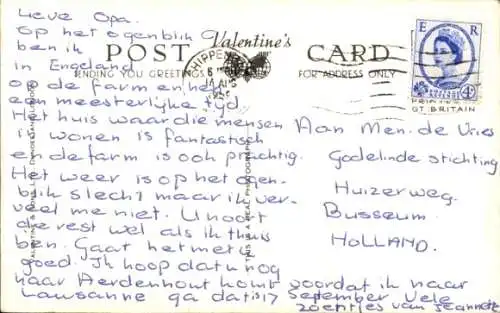 Lieve Opa.
Op het ogenblik
ben ik
in Engeland
op de farm en heb
een meesterlijke tijd
Het huis waar die mensen
in wonen is fantastisch
en de farm is ook prachtig.
Het weer is op het ogen-
blik slecht maar ik ver-
veel me niet. U hoort
de rest wel als ik thuis
ben. Gaat het met U
goed. Ik hoop dat U nog
naar Aerdenhout komt voordat ik naar
Lausanne ga dat is 17 september Vele
zoentjes van Jeannette
POST Valentine's CARD
SENDING YOU GREETINGS
FOR ADDRESS ONLY
E R
4D
GT BRITAIN
Aan Men. de Vries
Godelinde stichting
Huizerweg.
Bussum
HOLLAND.
THIS IS A REAL PHOTOGRAPH